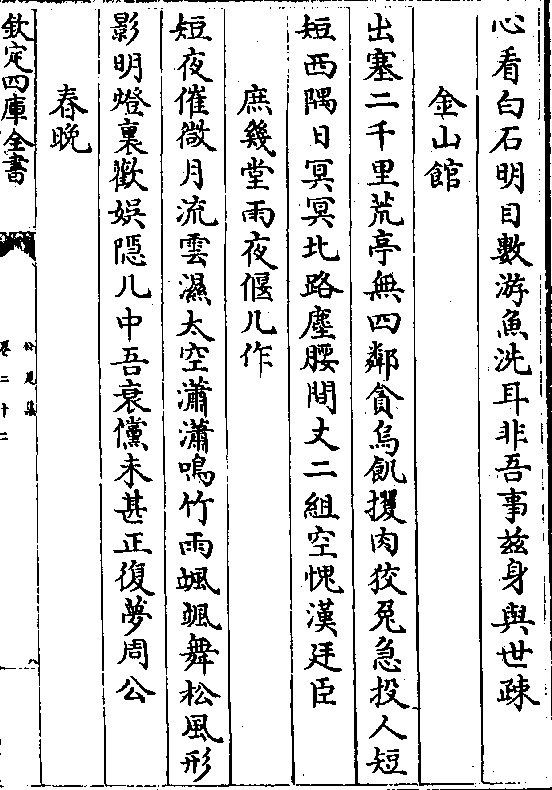 心看白石明目數游魚洗耳非吾事兹身與世疎
金山館
出塞二千里荒亭無四鄰貪烏飢攫肉狡兔急投人短
短西隅日冥冥北路塵腰間丈二組空愧漢廷臣
庶幾堂雨夜偃几作
短夜催微月流雲濕太空瀟瀟鳴竹雨颯颯舞松風形
影明燈裏歡娯隠几中吾衰儻未甚正復夢周公
春晩
欽定四庫全書
公是集
卷二十二